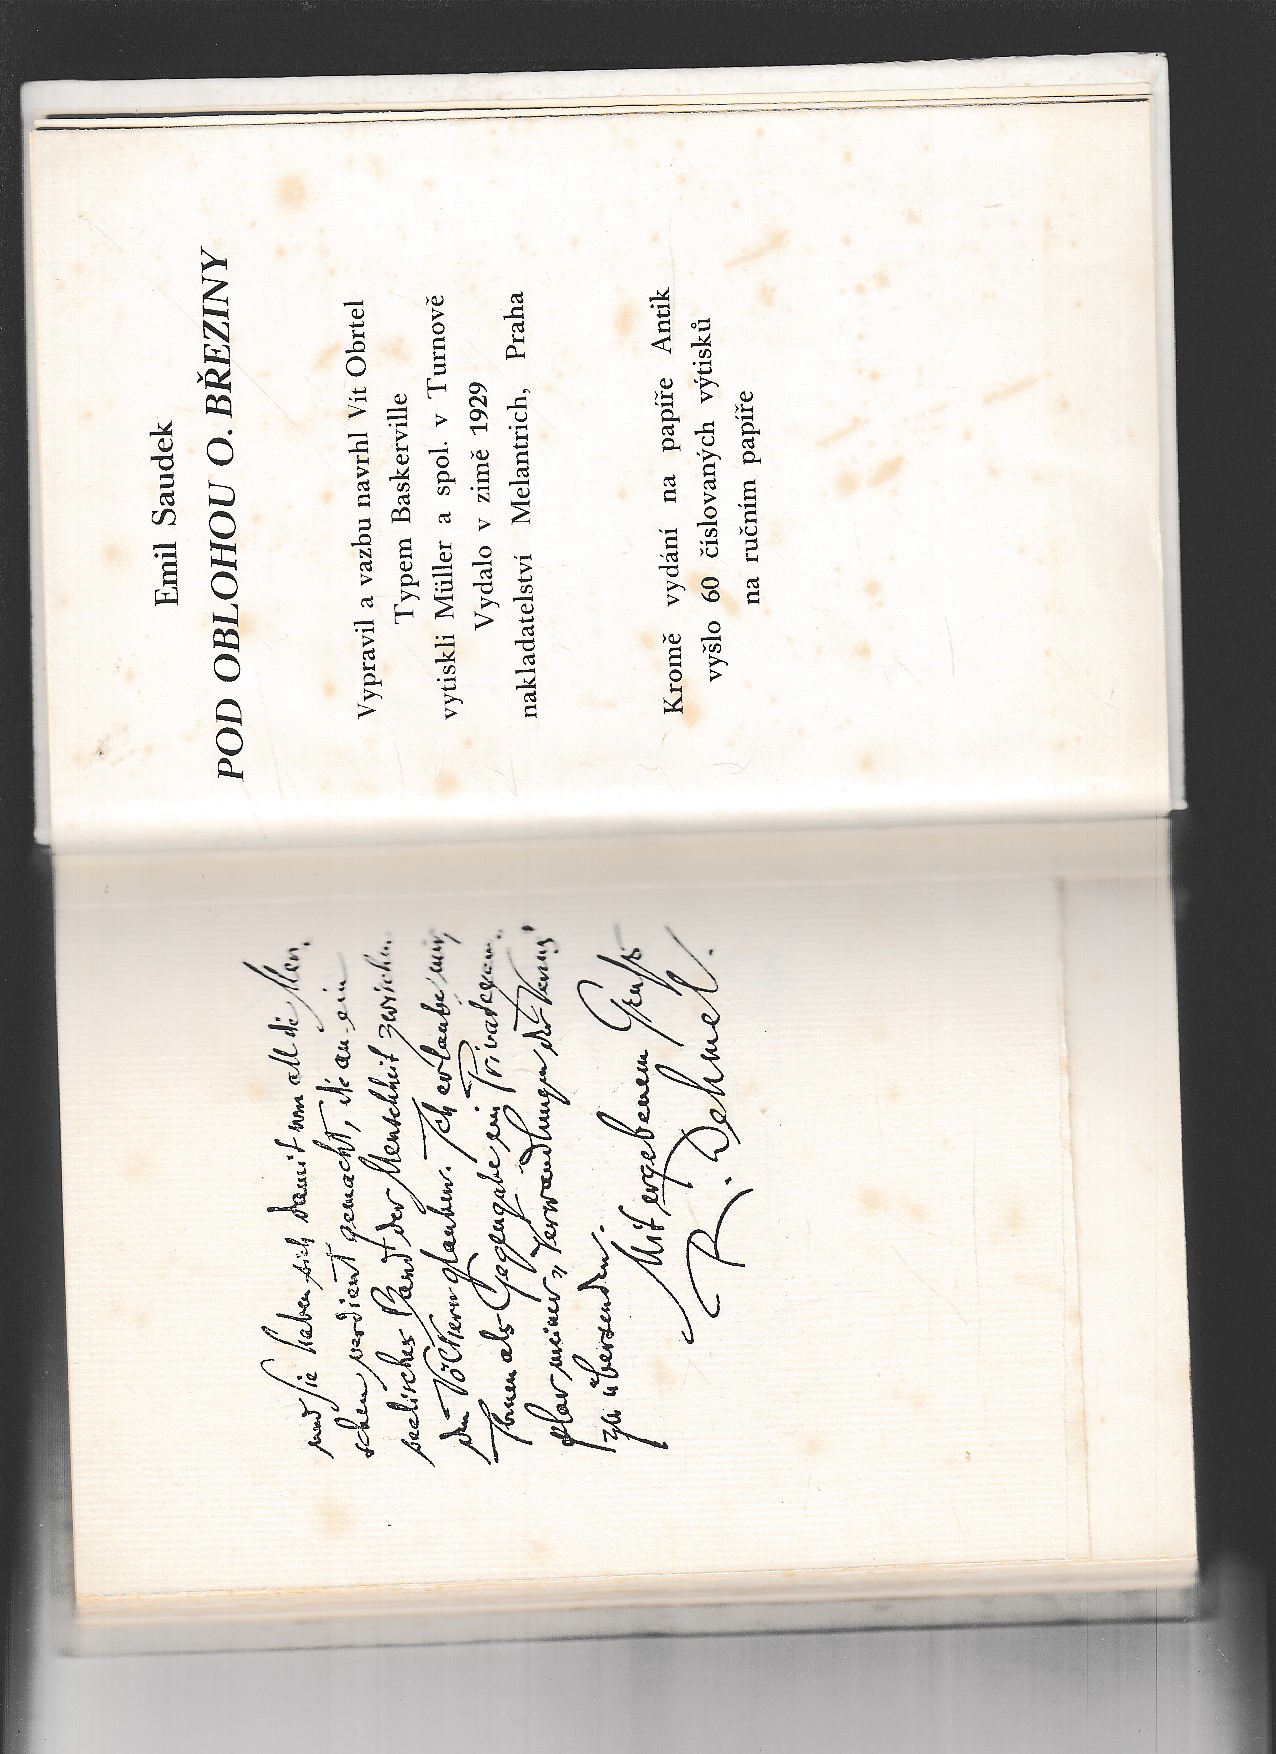 und Sie haben sich damit um all die Men-
schen verdient gemacht, die an ein
seelisches Band der Menschheit zwischen
den Völkern glauben. Ich erlaube mir,
Ihnen als Gegengabe ein Privatexem-
plar meiner „Verwandlungen der Venus“
zu übersenden.
Mit ergebenem Gruß
R. Dehmel.
Emil Saudek
POD OBLOHOU O. BŘEZINY
Vypravil a vazbu navrhl Vít Obrtel
Typem Baskerville
vytiskli Müller a spol. v Turnově
Vydalo v zimě 1929
nakladatelství Melantrich, Praha
Kromě vydání na papíře Antik
vyšlo 60 číslovaných výtisků
na ručním papíře